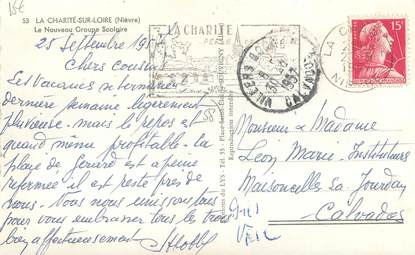 53 LA CHARITÉ-SUR-LOIRE (Nièvre)
Le Nouveau Groupe Scolaire
25 Septembre 195
Chers cousins
Les vacances se terminent
dernière semaine légèrement
pluvieuse - mais le repos est
quand même profitable - la
plaie de Gérard est à peine
refermée il est resté près de
nous - Nous nous unissons tous
pour vous embrasser tous les trois
bien affectueusement
LA CHARITÉ
VILLERS BOCAGE
CALVADOS
15F
LA C
NIÈVRE
Reproduction interdite
Monsieur & Madame
Léon Marie Instituteurs
Maisoncelles la Jourdan
Calvados